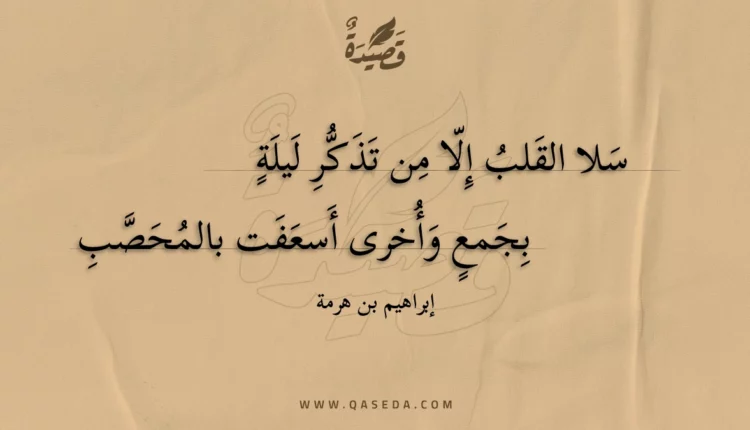 قَصِيدَةٌ
سَلا القَلبُ إِلّا مِن تَذَكُّرِ لَيلَةٍ
بِجَمعٍ وَأُخرى أَسعَفَت بالمُحَصَّبِ
إبراهيم بن هرمة
WWW.QASEDA.COM